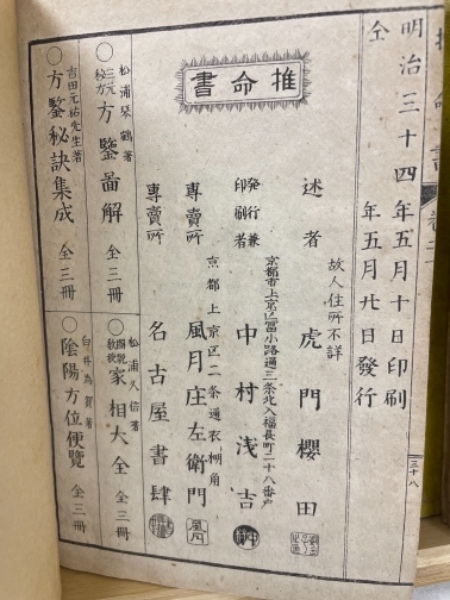 推命書 巻二
明治三十四年五月十日印刷
仝 年五月廿日發行
三十八
推命書
故人住所不詳
述者 虎門櫻田
京都市上京区冨小路通三条北入福長町二十八番戸
発行兼印刷者 中村浅吉
京都上京区二条通衣棚角
專賣所 風月庄左衛門
風月
專賣所 名古屋書肆
松浦琴鶴著
○三元秘方 方鑒啚解 全三冊
吉田元祐先生著
○方鑒秘訣集成 全三冊
松浦久信著
○図説 家相大全 全三冊
臼井為賀著
○陰陽方位便覧 全三冊